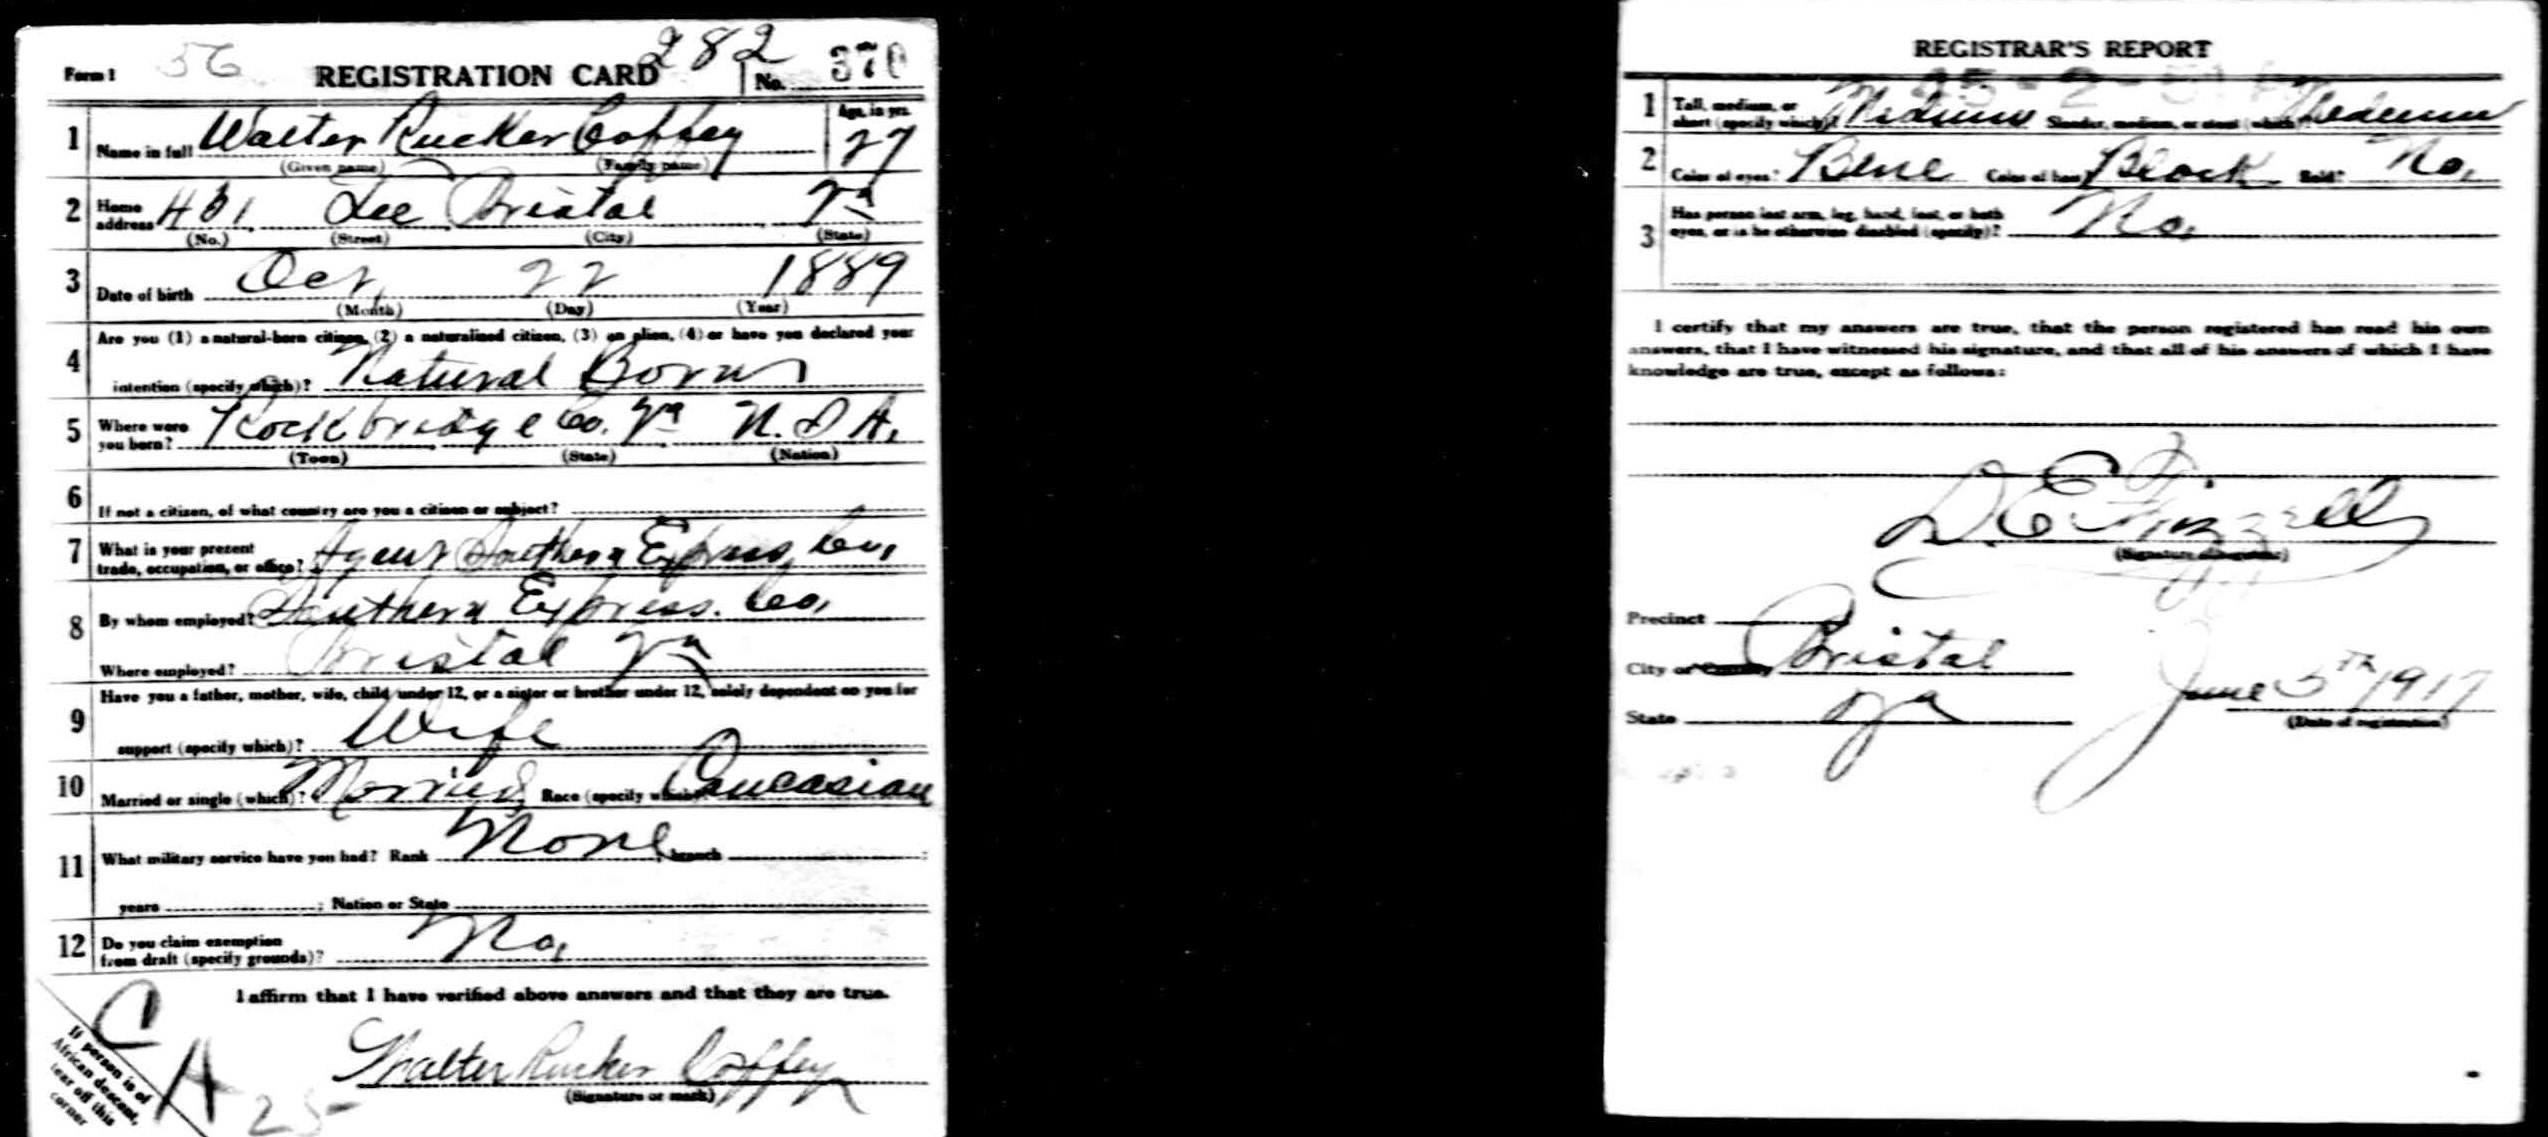 Form 1 56 REGISTRATION CARD 282 No. 370
1 Name in full Walter Rucker Coffey Age, in yrs. 27
(Given name) (Family name)
2 Home address 431 Lee Bristol Va
(No.) (Street) (City) (State)
3 Date of birth Oct, 22 1889
(Month) (Day) (Year)
Are you (1) a natural-born citizen, (2) a naturalized citizen, (3) an alien, (4) or have you declared your
4 intention (specify which)? Natural Born
5 Where were you born? Rockbridge Co. Va U.S.A.
(Town) (State) (Nation)
6 If not a citizen, of what country are you a citizen or subject?
7 What is your present trade, occupation, or office? Agent Southern Express Co,
8 By whom employed? Southern Express. Co,
Where employed? Bristol Va
Have you a father, mother, wife, child under 12, or a sister or brother under 12, solely dependent on you for
9 support (specify which)? Wife
10 Married or single (which)? Married Race (specify which)? Caucasian
11 What military service have you had? Rank None branch
years ; Nation or State
12 Do you claim exemption from draft (specify grounds)? No,
I affirm that I have verified above answers and that they are true.
Walter Rucker Coffey
(Signature or mark)
If person is of
African descent,
tear off this
corner
C
A
25
REGISTRAR'S REPORT
1 Tall, medium, or short (specify which)? Medium Slender, medium, or stout (which)? Medium
2 Color of eyes? Blue Color of hair? Black Bald? No,
3 Has person lost arm, leg, hand, foot, or both eyes, or is he otherwise disabled (specify)? No,
I certify that my answers are true, that the person registered has read his own
answers, that I have witnessed his signature, and that all of his answers of which I have
knowledge are true, except as follows:
D. E. Frizzell
(Signature of registrar)
Precinct
City or County Bristol
State Va
June 5th 1917
(Date of registration)